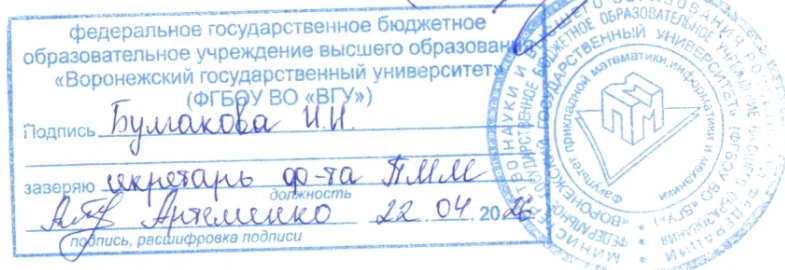 федеральное государственное бюджетное
образовательное учреждение высшего образования
«Воронежский государственный университет»
(ФГБОУ ВО «ВГУ»)
Подпись Булгакова И.Н.
заверяю секретарь ф-та ПММ
должность
Артеменко 22.04.2026
подпись, расшифровка подписи
ФЕДЕРАЛЬНОЕ ГОСУДАРСТВЕННОЕ БЮДЖЕТНОЕ ОБРАЗОВАТЕЛЬНОЕ УЧРЕЖДЕНИЕ ВЫСШЕГО ОБРАЗОВАНИЯ
«ВОРОНЕЖСКИЙ ГОСУДАРСТВЕННЫЙ УНИВЕРСИТЕТ» (ФГБОУ ВО «ВГУ»)
Факультет прикладной математики, информатики и механики